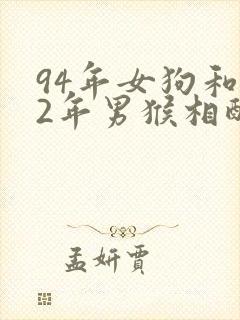 94年女狗和
2年男猴相配
孟妍贾